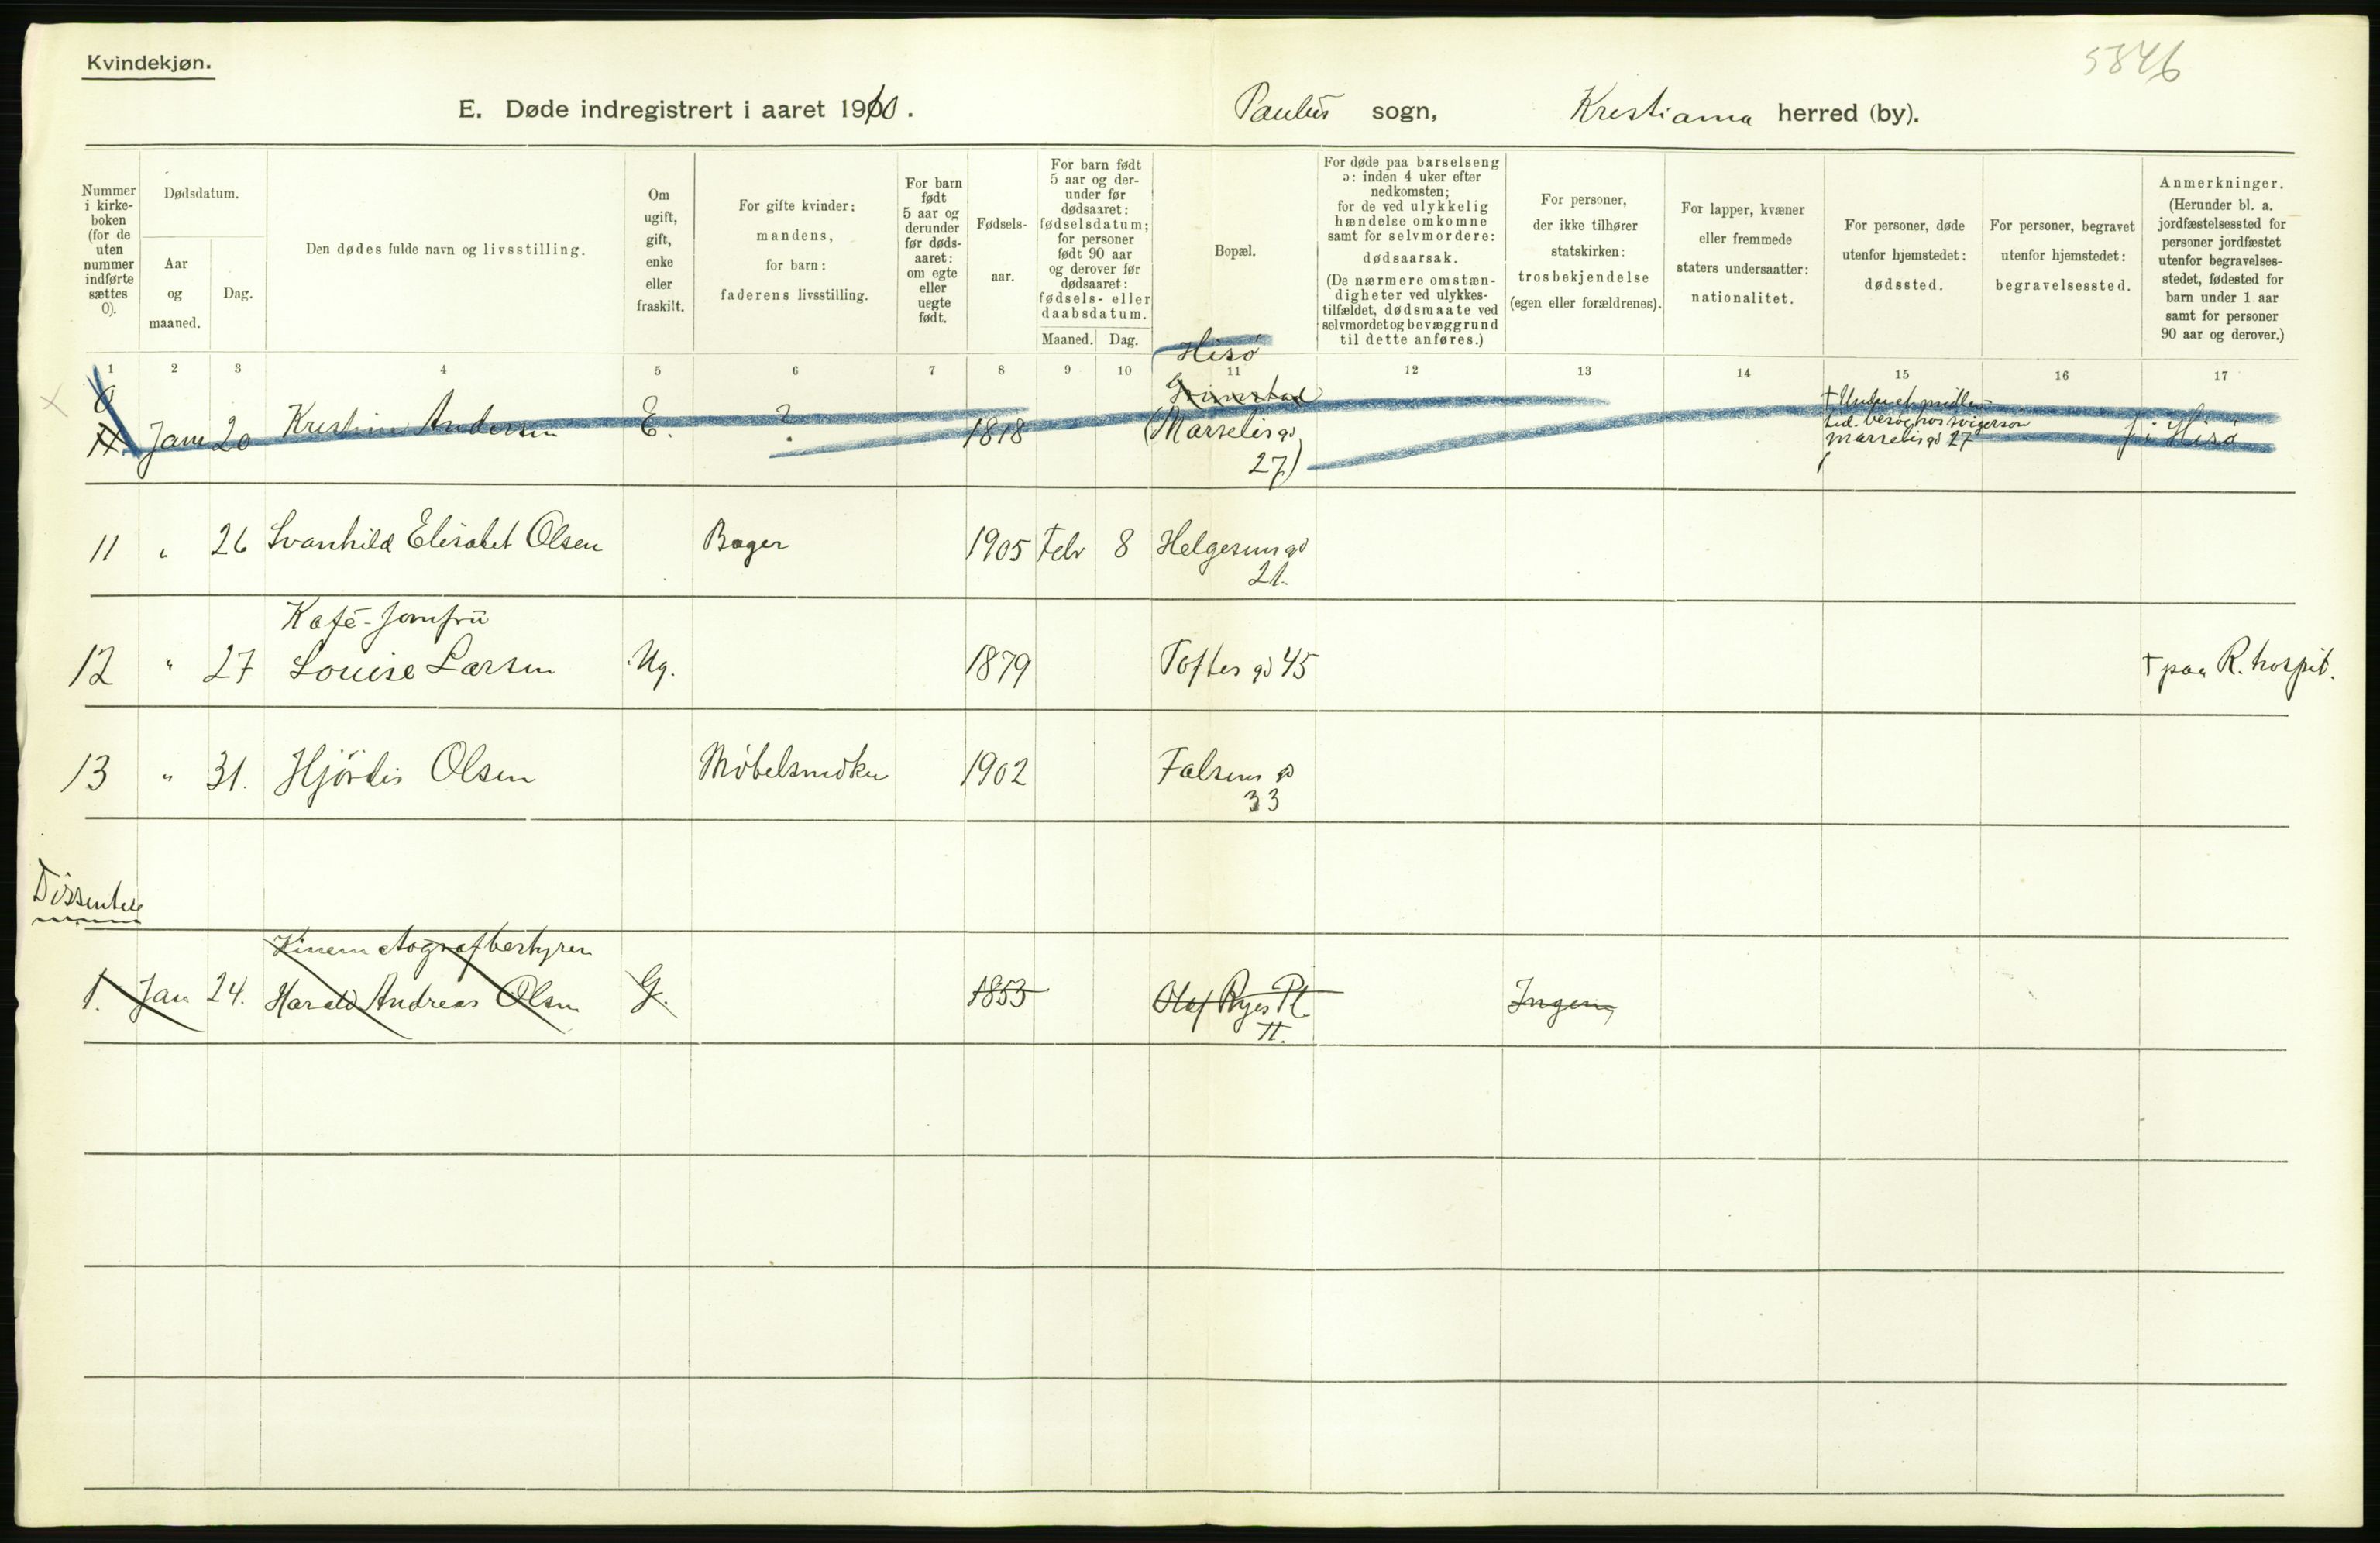 Kvindekjøn.
5846
E. Døde indregistrert i aaret 1910.
Paulus sogn, Kristiania herred (by).
Nummer i kirkeboken (for de uten nummer indførte sættes 0).
Dødsdatum.
Aar og maaned.
Dag.
Den dødes fulde navn og livsstilling.
Om ugift, gift, enke eller fraskilt.
For gifte kvinder: mandens, for barn: faderens livsstilling.
For barn født 5 aar og derunder før dødsaaret: om egte eller uegte født.
Fødselsaar.
For barn født 5 aar og derunder før dødsaaret: fødselsdatum; for personer født 90 aar og derover før dødsaaret: fødsels- eller daabsdatum.
Maaned. Dag.
Bopæl.
For døde paa barselseng ɔ: inden 4 uker efter nedkomsten; for de ved ulykkelig hændelse omkomne samt for selvmordere: dødsaarsak.
(De nærmere omstændigheter ved ulykkestilfældet, dødsmaate ved selvmordet og bevæggrund til dette anføres.)
For personer, der ikke tilhører statskirken: trosbekjendelse (egen eller forældrenes).
For lapper, kvæner eller fremmede staters undersaatter: nationalitet.
For personer, døde utenfor hjemstedet: dødssted.
For personer, begravet utenfor hjemstedet: begravelsessted.
Anmerkninger.
(Herunder bl. a. jordfæstelsessted for personer jordfæstet utenfor begravelsesstedet, fødested for barn under 1 aar samt for personer 90 aar og derover.)
1 2 3 4 5 6 7 8 9 10 11 12 13 14 15 16 17
Hisø
Grimstad
0
11 Janu 20 Kristine Andersen E. ? 1818 (Marselisgd 27) † Under et midlertid. besøg hos svigersøn Marselisgd 27 i Hisø
11 " 26 Svanhild Elisabet Olsen Bager 1905 Febr 8 Helgesensgd 21.
Kafé-Jomfru
12 " 27 Louise Larsen Ug. 1879 Toftesgd 45 † paa R. hospit.
13 " 31. Hjördis Olsen Møbelsnidker 1902 Falsensgd 33
Dissentere
Kinematografbestyrer
1. Jan 24. Harald Andreas Olsen G. 1853 Olaf Ryes Pl. II. Ingen